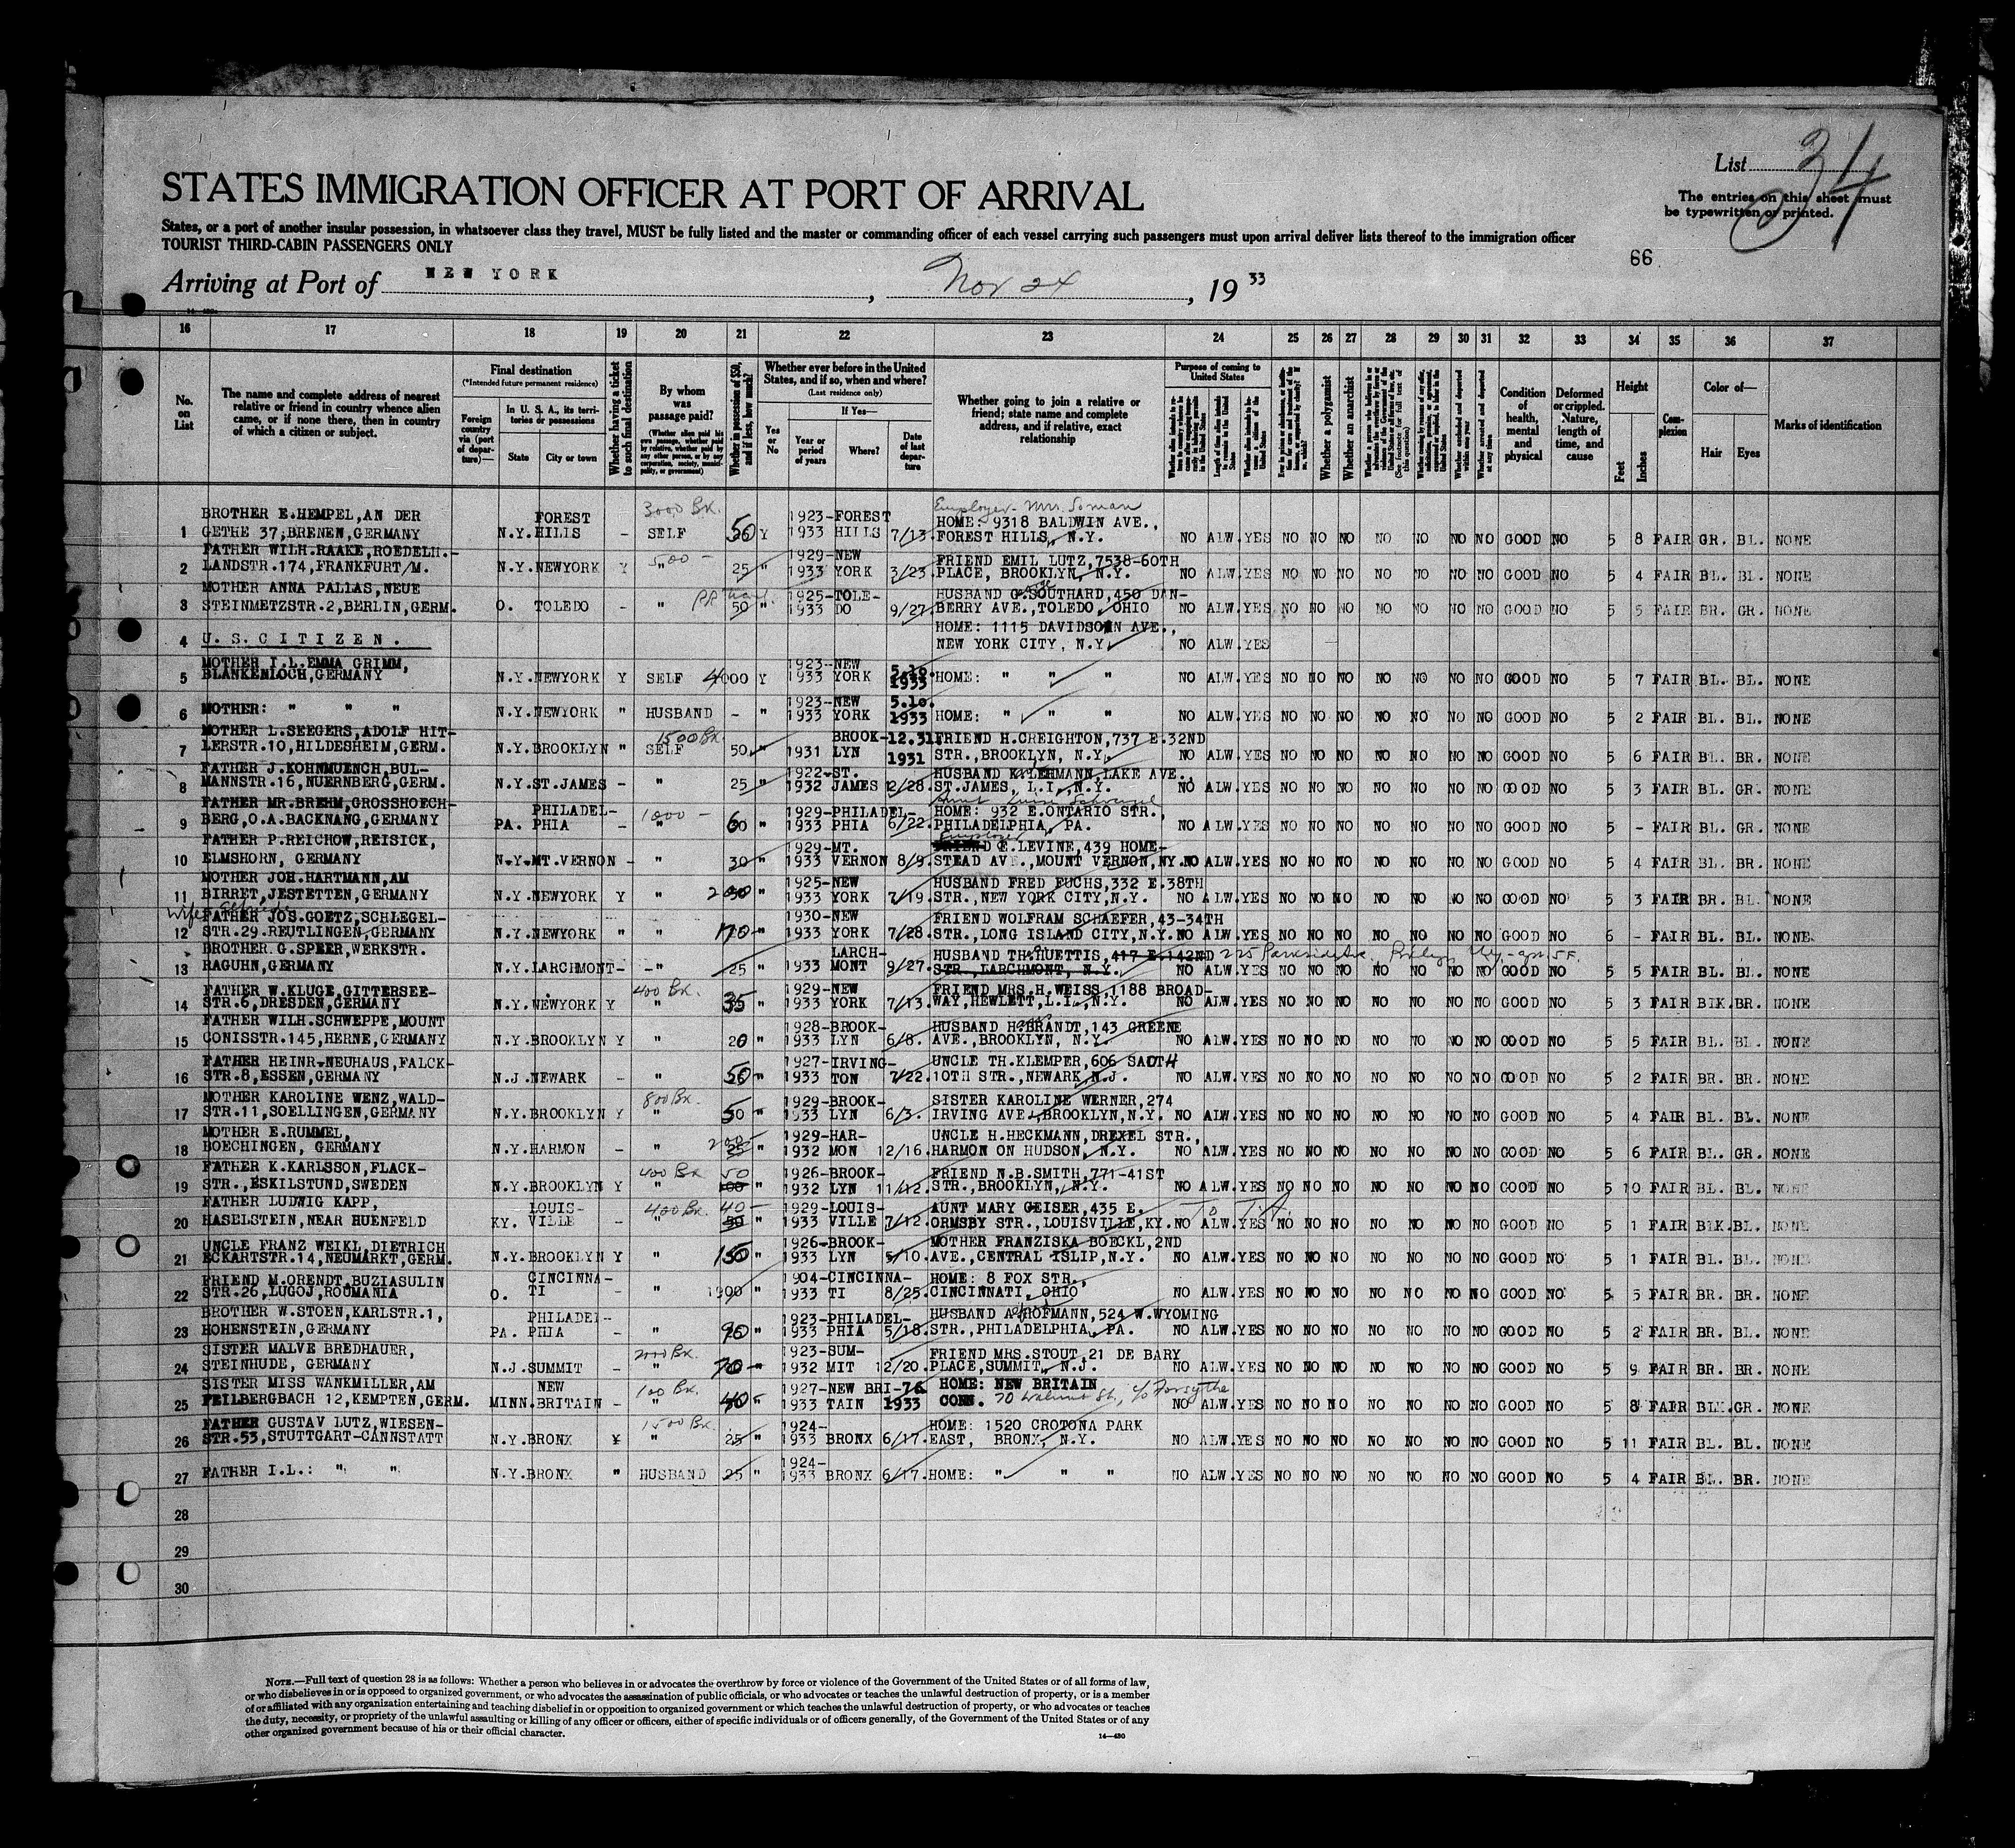 List 34
STATES IMMIGRATION OFFICER AT PORT OF ARRIVAL
The entries on this sheet must
be typewritten or printed.
States, or a port of another insular possession, in whatsoever class they travel, MUST be fully listed and the master or commanding officer of each vessel carrying such passengers must upon arrival deliver lists thereof to the immigration officer
TOURIST THIRD-CABIN PASSENGERS ONLY
66
Arriving at Port of NEW YORK, Nov 24, 1933
16 17 18 19 20 21 22 23 24 25 26 27 28 29 30 31 32 33 34 35 36 37
No. on List
The name and complete address of nearest relative or friend in country whence alien came, or if none there, then in country of which a citizen or subject.
Final destination
(*Intended future permanent residence)
Foreign country via (port of departure)—
In U. S. A., its territories or possessions
State
City or town
Whether having a ticket to such final destination
By whom was passage paid?
(Whether alien paid his own passage, whether paid by relative, whether paid by any other person, or by any corporation, society, municipality, or government)
Whether in possession of $50, and if less, how much?
Whether ever before in the United States, and if so, when and where?
(Last residence only)
Yes or No
If Yes—
Year or period of years
Where?
Date of last departure
Whether going to join a relative or friend; state name and complete address, and if relative, exact relationship
Purpose of coming to United States
Whether a polygamist
Whether an anarchist
Condition of health, mental and physical
Deformed or crippled. Nature, length of time, and cause
Height
Feet
Inches
Complexion
Color of—
Hair
Eyes
Marks of identification
3000 Bk. Employer - Mrs. Soman
1 BROTHER E.HEMPEL,AN DER GETHE 37,BREMEN,GERMANY N.Y. FOREST HILLS - SELF 50 Y 1923-1933 FOREST HILLS 7/13. HOME: 9318 BALDWIN AVE., FOREST HILLS, N.Y. NO ALW. YES NO NO NO NO NO NO NO GOOD NO 5 8 FAIR GR. BL. NONE
2 FATHER WILH.RAAKE,ROEDELH.-LANDSTR.174,FRANKFURT/M. N.Y. NEWYORK Y " 500 - 25 " 1929-1933 NEW YORK 3/23. FRIEND EMIL LUTZ,7538-60TH PLACE, BROOKLYN, N.Y. NO ALW. YES NO NO NO NO NO NO NO GOOD NO 5 4 FAIR BL. BL. NONE
3 MOTHER ANNA PALLAS,NEUE STEINMETZSTR.2,BERLIN,GERM. O. TOLEDO - " 50 " 1925-1933 TOLEDO 9/27. HUSBAND G.SOUTHARD,450 DANBERRY AVE.,TOLEDO, OHIO NO ALW. YES NO NO NO NO NO NO NO GOOD NO 5 5 FAIR BR. GR. NONE
4 U.S.CITIZEN. HOME: 1115 DAVIDSON AVE., NEW YORK CITY, N.Y. NO ALW. YES
5 MOTHER I.L.EMMA GRIMM, BLANKENLOCH,GERMANY N.Y. NEWYORK Y SELF 4000 Y 1923-1933 NEW YORK 5.10. 1933 HOME: " " " NO ALW. YES NO NO NO NO NO NO NO GOOD NO 5 7 FAIR BL. BL. NONE
6 MOTHER: " " " N.Y. NEWYORK " HUSBAND - " 1923-1933 NEW YORK 5.10. 1933 HOME: " " " NO ALW. YES NO NO NO NO NO NO NO GOOD NO 5 2 FAIR BL. BL. NONE
7 MOTHER L.SEEGERS,ADOLF HITLERSTR.10,HILDESHEIM,GERM. N.Y. BROOKLYN " SELF 1500 Bk 50 " 1931 BROOKLYN 12.31. 1931 FRIEND H.CREIGHTON,737 E.32ND STR.,BROOKLYN, N.Y. NO ALW. YES NO NO NO NO NO NO NO GOOD NO 5 6 FAIR BL. BR. NONE
8 FATHER J.KOHNMUENCH,BULMANNSTR.16,NUERNBERG,GERM. N.Y. ST.JAMES - " 25 " 1922-1932 ST. JAMES 12/28. HUSBAND K.LEHMANN,LAKE AVE., ST.JAMES, L.I., N.Y. NO ALW. YES NO NO NO NO NO NO NO GOOD NO 5 3 FAIR BL. GR. NONE
9 FATHER MR.BREHM,GROSSHOECHBERG,O.A.BACKNANG,GERMANY PA. PHILADELPHIA - 1000 - " 60 " 1929-1933 PHILADELPHIA 6/22. HOME: 932 E.ONTARIO STR., PHILADELPHIA, PA. NO ALW. YES NO NO NO NO NO NO NO GOOD NO 5 - FAIR BL. GR. NONE
10 FATHER P.REICHOW,REISICK, ELMSHORN, GERMANY N.Y. MT.VERNON - " 30 " 1929-1933 MT. VERNON 8/9. Employer FRIEND E.LEVINE,439 HOMESTEAD AVE.,MOUNT VERNON,NY. NO ALW. YES NO NO NO NO NO NO NO GOOD NO 5 4 FAIR BL. BR. NONE
11 MOTHER JOH.HARTMANN,AM BIRRET,JESTETTEN,GERMANY N.Y. NEWYORK Y " 200 " 1925-1933 NEW YORK 7/19. HUSBAND FRED FUCHS,332 E.38TH STR.,NEW YORK CITY,N.Y. NO ALW. YES NO NO NO NO NO NO NO GOOD NO 5 3 FAIR BR. BL. NONE
12 wife FATHER JOS.GOETZ,SCHLEGELSTR.29.REUTLINGEN,GERMANY N.Y. NEWYORK " " 170 " 1930-1933 NEW YORK 7/28. FRIEND WOLFRAM SCHAEFER,43-34TH STR.,LONG ISLAND CITY,N.Y. NO ALW. YES NO NO NO NO NO NO NO GOOD NO 6 - FAIR BL. BL. NONE
13 BROTHER G.SPEER,WERKSTR. RAGUHN,GERMANY N.Y. LARCHMONT - " 25 " 1933 LARCHMONT 9/27. HUSBAND TH.HUETTIS,417 E.142ND STR., LARCHMONT, N.Y. 225 Parkside Ave. NO ALW. YES NO NO NO NO NO NO NO GOOD NO 5 5 FAIR BL. BL. NONE
14 FATHER W.KLUGE,GITTERSEESTR.6,DRESDEN,GERMANY N.Y. NEWYORK Y 400 Bk. " 35 " 1929-1933 NEW YORK 7/13. FRIEND MRS.H.WEISS,1188 BROADWAY,HEWLETT,L.I., N.Y. NO ALW. YES NO NO NO NO NO NO NO GOOD NO 5 3 FAIR BLK. BR. NONE
15 FATHER WILH.SCHWEPPE,MOUNT CONISSTR.145,HERNE,GERMANY N.Y. BROOKLYN Y " 20 " 1928-1933 BROOKLYN 6/8. HUSBAND H.BRANDT,143 GREENE AVE.,BROOKLYN, N.Y. NO ALW. YES NO NO NO NO NO NO NO GOOD NO 5 5 FAIR BL. BL. NONE
16 FATHER HEINR.NEUHAUS,FALCKSTR.8,ESSEN,GERMANY N.J. NEWARK - " 50 " 1927-1933 IRVINGTON 7/22. UNCLE TH.KLEMPER,606 SAOTH 10TH STR.,NEWARK,N.J. NO ALW. YES NO NO NO NO NO NO NO GOOD NO 5 2 FAIR BR. BR. NONE
17 MOTHER KAROLINE WENZ,WALDSTR.11,SOELLINGEN,GERMANY N.Y. BROOKLYN Y 800 Bk. " 50 " 1929-1933 BROOKLYN 6/3. SISTER KAROLINE WERNER,274 IRVING AVE.,BROOKLYN,N.Y. NO ALW. YES NO NO NO NO NO NO NO GOOD NO 5 4 FAIR BL. BL. NONE
18 MOTHER E.RUMMEL, BOECHINGEN, GERMANY N.Y. HARMON - " 200 - 25 " 1929-1932 HARMON 12/16. UNCLE H.HECKMANN,DREXEL STR., HARMON ON HUDSON, N.Y. NO ALW. YES NO NO NO NO NO NO NO GOOD NO 5 6 FAIR BL. GR. NONE
19 FATHER K.KARLSSON,FLACKSTR.,ESKILSTUND,SWEDEN N.Y. BROOKLYN Y 400 Bk " 50 100 " 1926-1932 BROOKLYN 11/12. FRIEND N.B.SMITH,771-41ST STR.,BROOKLYN, N.Y. NO ALW. YES NO NO NO NO NO NO NO GOOD NO 5 10 FAIR BL. BL. NONE
20 FATHER LUDWIG KAPP, HASELSTEIN,NEAR HUENFELD KY. LOUISVILLE - 400 Bk. " 40 - 50 " 1929-1933 LOUISVILLE 7/12. AUNT MARY GEISER,435 E. ORMSBY STR.,LOUISVILLE,KY. NO ALW. YES NO NO NO NO NO NO NO GOOD NO 5 1 FAIR BLK. BL. NONE
21 UNCLE FRANZ WEIKL,DIETRICH ECKARTSTR.14,NEUMARKT,GERM. N.Y. BROOKLYN Y " 150 " 1926-1933 BROOKLYN 5/10. MOTHER FRANZISKA BOECKL,2ND AVE.,CENTRAL ISLIP,N.Y. NO ALW. YES NO NO NO NO NO NO NO GOOD NO 5 1 FAIR BL. BL. NONE
22 FRIEND M.ORENDT,BUZIASULIN STR.26,LUGOJ,ROUMANIA O. CINCINNATI - " 1900 " 1904-1933 CINCINNATI 8/25. HOME: 8 FOX STR., CINCINNATI, OHIO NO ALW. YES NO NO NO NO NO NO NO GOOD NO 5 5 FAIR BR. BR. NONE
23 BROTHER W.STOEN,KARLSTR.1, HOHENSTEIN,GERMANY PA. PHILADELPHIA - " 90 " 1923-1933 PHILADELPHIA 5/18. HUSBAND A.HOFMANN,524 W.WYOMING STR.,PHILADELPHIA, PA. NO ALW. YES NO NO NO NO NO NO NO GOOD NO 5 2 FAIR BR. BL. NONE
24 SISTER MALVE BREDHAUER, STEINHUDE, GERMANY N.J. SUMMIT - 2000 Bk. " 70 " 1923-1932 SUMMIT 12/20. FRIEND MRS.STOUT,21 DE BARY PLACE,SUMMIT, N.J. NO ALW. YES NO NO NO NO NO NO NO GOOD NO 5 9 FAIR BR. BR. NONE
25 SISTER MISS WANKMILLER,AM FEILBERGBACH 12,KEMPTEN,GERM. MINN. NEW BRITAIN - 100 Bk. " 40 " 1927-1933 NEW BRITAIN 7.6. 1933 HOME: NEW BRITAIN CONN. 70 Walnut St., c/o Forsythe NO ALW. YES NO NO NO NO NO NO NO GOOD NO 5 8 FAIR BLK. GR. NONE
26 FATHER GUSTAV LUTZ,WIESENSTR.53,STUTTGART-CANNSTATT N.Y. BRONX Y 1500 Bk. " 25 " 1924-1933 BRONX 6/17. HOME: 1520 CROTONA PARK EAST, BRONX, N.Y. NO ALW. YES NO NO NO NO NO NO NO GOOD NO 5 11 FAIR BL. BL. NONE
27 FATHER I.L.: " " N.Y. BRONX " HUSBAND 25 " 1924-1933 BRONX 6/17. HOME: " " " NO ALW. YES NO NO NO NO NO NO NO GOOD NO 5 4 FAIR BL. BR. NONE
28
29
30
NOTE.—Full text of question 28 is as follows: Whether a person who believes in or advocates the overthrow by force or violence of the Government of the United States or of all forms of law,
or who disbelieves in or is opposed to organized government, or who advocates the assassination of public officials, or who advocates or teaches the unlawful destruction of property, or is a member
of or affiliated with any organization entertaining and teaching disbelief in or opposition to organized government or which teaches the unlawful destruction of property, or who advocates or teaches
the duty, necessity, or propriety of the unlawful assaulting or killing of any officer or officers, either of specific individuals or of officers generally, of the Government of the United States or of any
other organized government because of his or their official character.
14—430